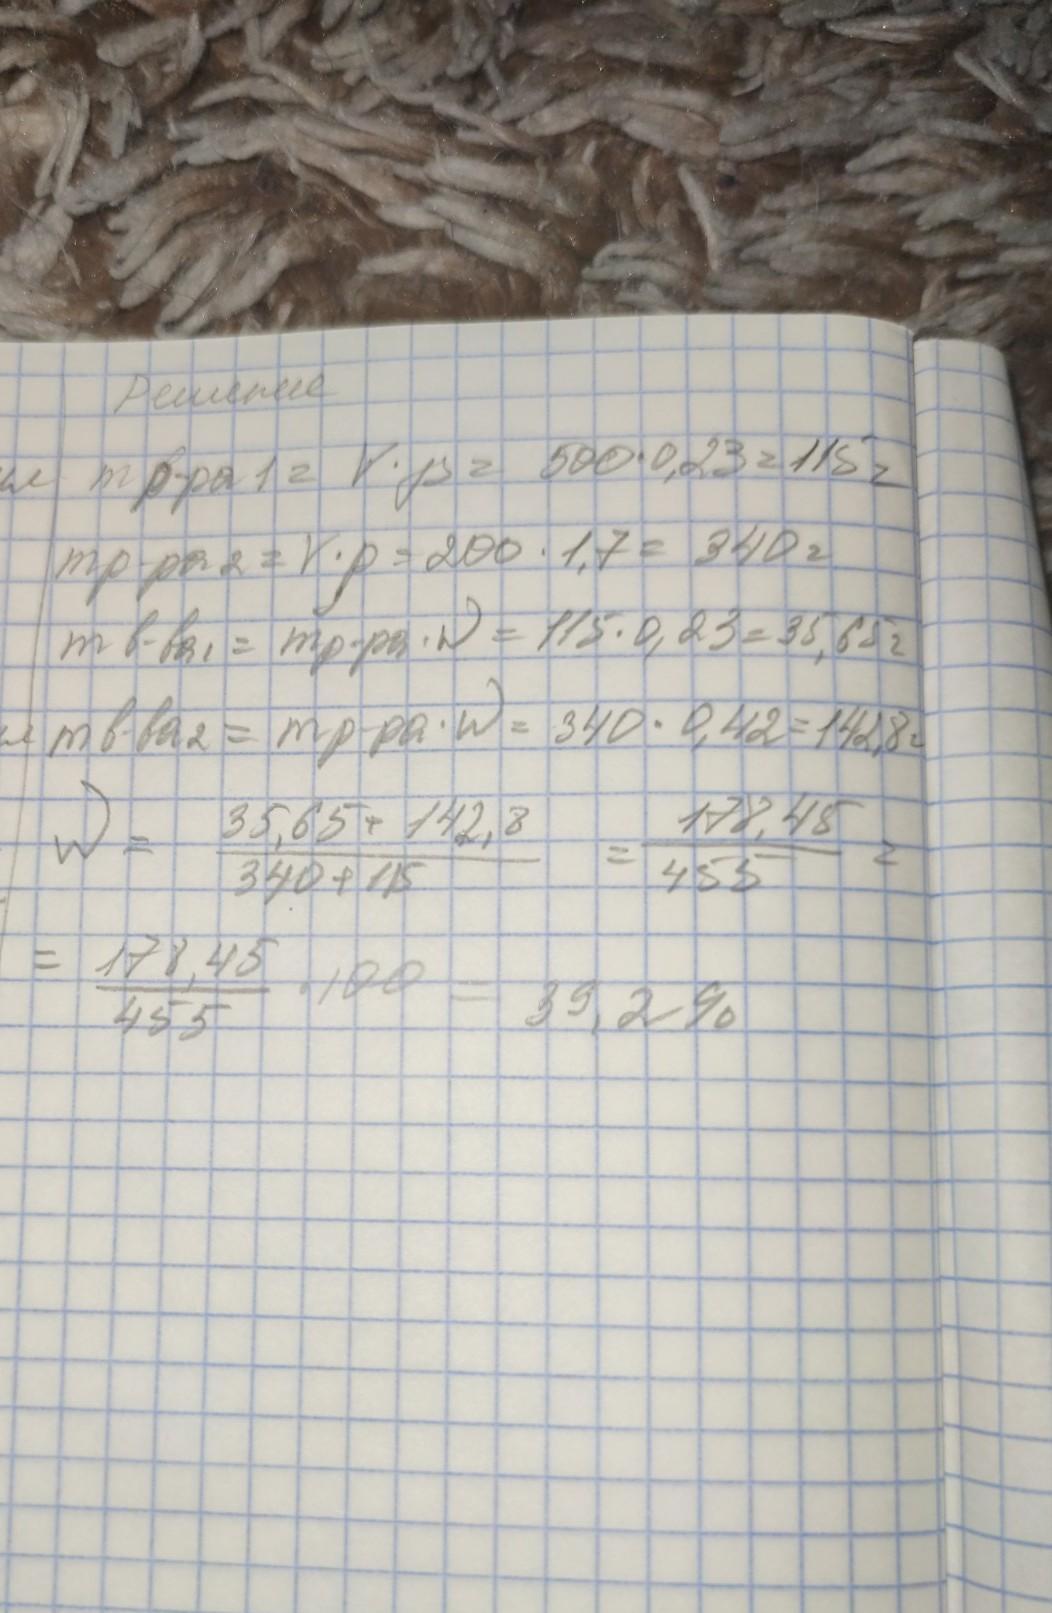 Решение
mр-ра1 = V·p = 500·0,23=115г
mр-ра2 = V·p = 200·1,7= 340г
m в-ва1 = mр-ра·W = 115·0,23=35,65г
m в-ва2 = mр-ра·W = 340·0,42=142,8г
W = 35,65+142,8 / 340+115 = 178,45 / 455 =
= 178,45 / 455 ·100 = 39,2%